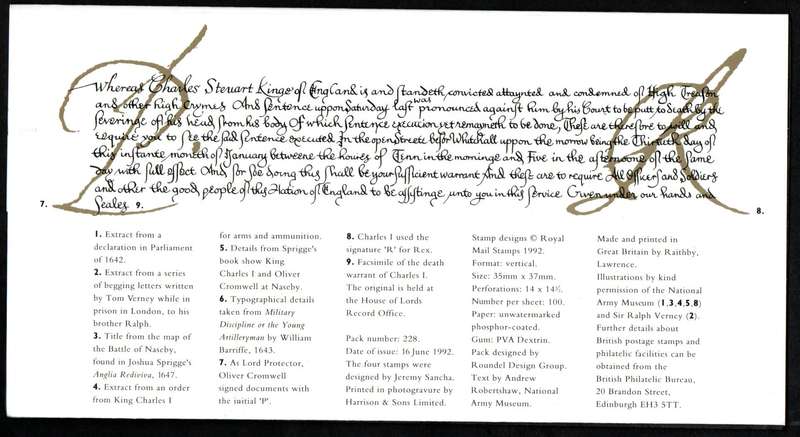 P.
R
Whereas Charles Steuart Kinge of England is and standeth convicted attaynted and condemned of High Treason
and other high Crymes And sentence uppon Saturday last was pronounced against him by his Court to be putt to death by the
severinge of his head from his body Of which sentence execution yet remayneth to be done, These are therefore to will and
require you to see the said sentence executed In the open Streete before Whitehall uppon the morrow being the Thirtieth day of
this instante moneth of January betweene the houres of Tenn in the morninge and Five in the afternoone of the same
day with full effect And for soe doing this shall be your sufficient warrant And these are to require All Officers and Soldiers
and other the good people of this Nation of England to be assistinge unto you in this service Given under our hands and
7.
Seales 9.
8.
1. Extract from a
declaration in Parliament
of 1642.
2. Extract from a series
of begging letters written
by Tom Verney while in
prison in London, to his
brother Ralph.
3. Title from the map of
the Battle of Naseby,
found in Joshua Sprigge's
Anglia Rediviva, 1647.
4. Extract from an order
from King Charles I
for arms and ammunition.
5. Details from Sprigge's
book show King
Charles I and Oliver
Cromwell at Naseby.
6. Typographical details
taken from Military
Discipline or the Young
Artilleryman by William
Barriffe, 1643.
7. As Lord Protector,
Oliver Cromwell
signed documents with
the initial 'P'.
8. Charles I used the
signature 'R' for Rex.
9. Facsimile of the death
warrant of Charles I.
The original is held at
the House of Lords
Record Office.
Pack number: 228.
Date of issue: 16 June 1992.
The four stamps were
designed by Jeremy Sancha.
Printed in photogravure by
Harrison & Sons Limited.
Stamp designs © Royal
Mail Stamps 1992.
Format: vertical.
Size: 35mm x 37mm.
Perforations: 14 x 14½.
Number per sheet: 100.
Paper: unwatermarked
phosphor-coated.
Gum: PVA Dextrin.
Pack designed by
Roundel Design Group.
Text by Andrew
Robertshaw, National
Army Museum.
Made and printed in
Great Britain by Raithby,
Lawrence.
Illustrations by kind
permission of the National
Army Museum (1,3,4,5,8)
and Sir Ralph Verney (2).
Further details about
British postage stamps and
philatelic facilities can be
obtained from the
British Philatelic Bureau,
20 Brandon Street,
Edinburgh EH3 5TT.